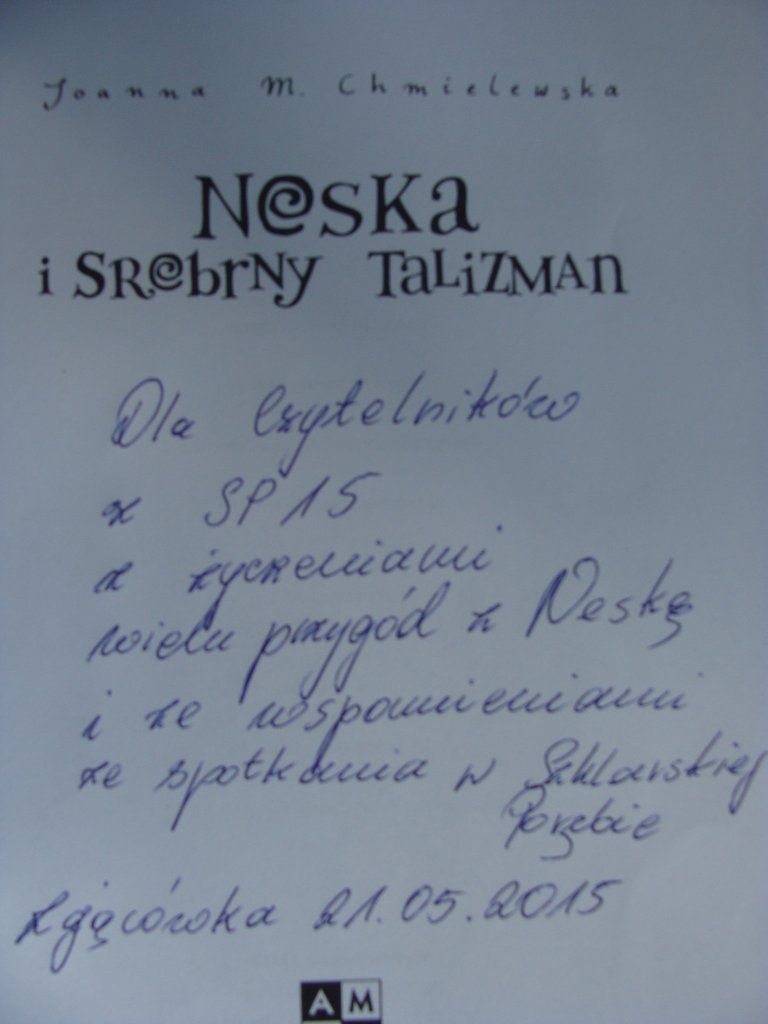 Joanna M. Chmielewska
Neska
i Srebrny Talizman
Dla Czytelników
z SP 15
z życzeniami
wielu przygód z Neską
i ze wspomnieniami
ze spotkania w Szklarskiej
Porębie
21.05.2015
AM